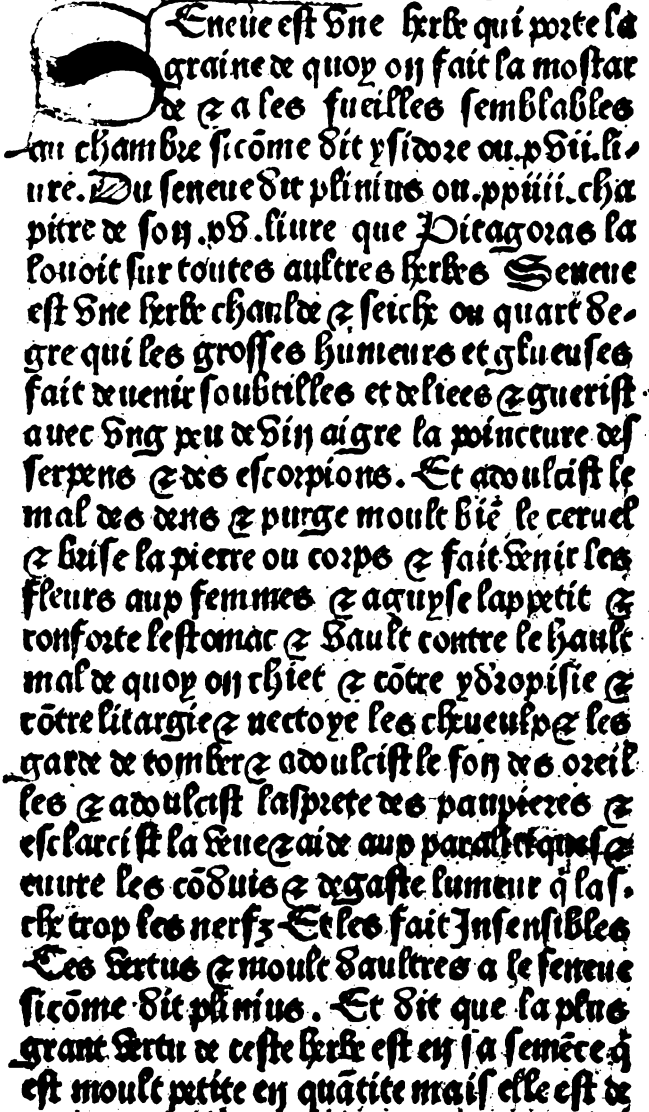 Seneue est vne herbe qui porte la
graine de quoy on fait la mostar
de ⁊ a les fueilles semblables
au chambre sicōme dit ysidore ou.xvii.li-
ure. Du seneue dit plinius ou.xxiiii.cha
pitre de son.xv.liure que Pitagoras la
louoit sur toutes aultres herbes Seneue
est vne herbe chaulde ⁊ seiche ou quart de-
gre qui les grosses humeurs et glueuses
fait deuenir soubtilles et deliees ⁊ guerist
auec vng peu de vin aigre la poincture des
serpens ⁊ des escorpions. Et adoulcist le
mal des dens ⁊ purge moult biē le ceruel
⁊ brise la pierre ou corps ⁊ fait venir les
fleurs aux femmes ⁊ aguyse lappetit ⁊
conforte lestomac ⁊ vault contre le hault
mal de quoy on chiet ⁊ cōtre ydropisie ⁊
cōtre litargie ⁊ nectoye les cheueulx ⁊ les
garde de tomber ⁊ adoulcist le son des oreil
les ⁊ adoulcist lasprete des paupieres ⁊
esclarcist la veue ⁊ aide aux paraliticques ⁊
euure les cōduis ⁊ degaste lumeur q̄ las-
che trop les nerfz Et les fait Insensibles
Ces vertus ⁊ moult daultres a le seneue
sicōme dit plinius. Et dit que la plus
grant vertu de ceste herbe est en sa semēce q̄
est moult petite en quātite mais elle est de